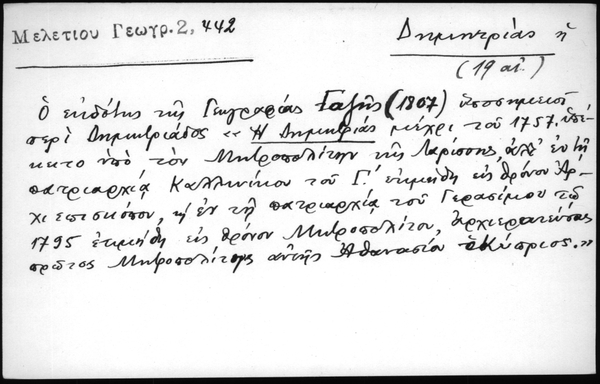 Μελετίου Γεωγρ. 2, 442
Δημητριάς ἡ
(19 αἰ.)
Ὁ ἐκδότης τῆς Γεωγραφίας Γαζῆς (1807) ὑποσημειοῖ
περὶ Δημητριάδος «Ἡ Δημητριὰς μέχρι τοῦ 1757, ὑπέ-
κειτο ὑπὸ τὸν Μητροπολίτην τῆς Λαρίσσης, ἀλλ' ἐν τῇ
πατριαρχίᾳ Καλλινίκου τοῦ Γ΄ ἐτιμήθη εἰς θρόνον Ἀρ-
χιεπισκόπου, κ' ἐν τῇ πατριαρχίᾳ τοῦ Γερασίμου τῷ
1795 ἐτιμήθη εἰς θρόνον Μητροπολίτου, ἀρχιερατεύσας
πρῶτος Μητροπολίτης αὐτῆς Ἀθανάσιος ὁ Κύπριος.»